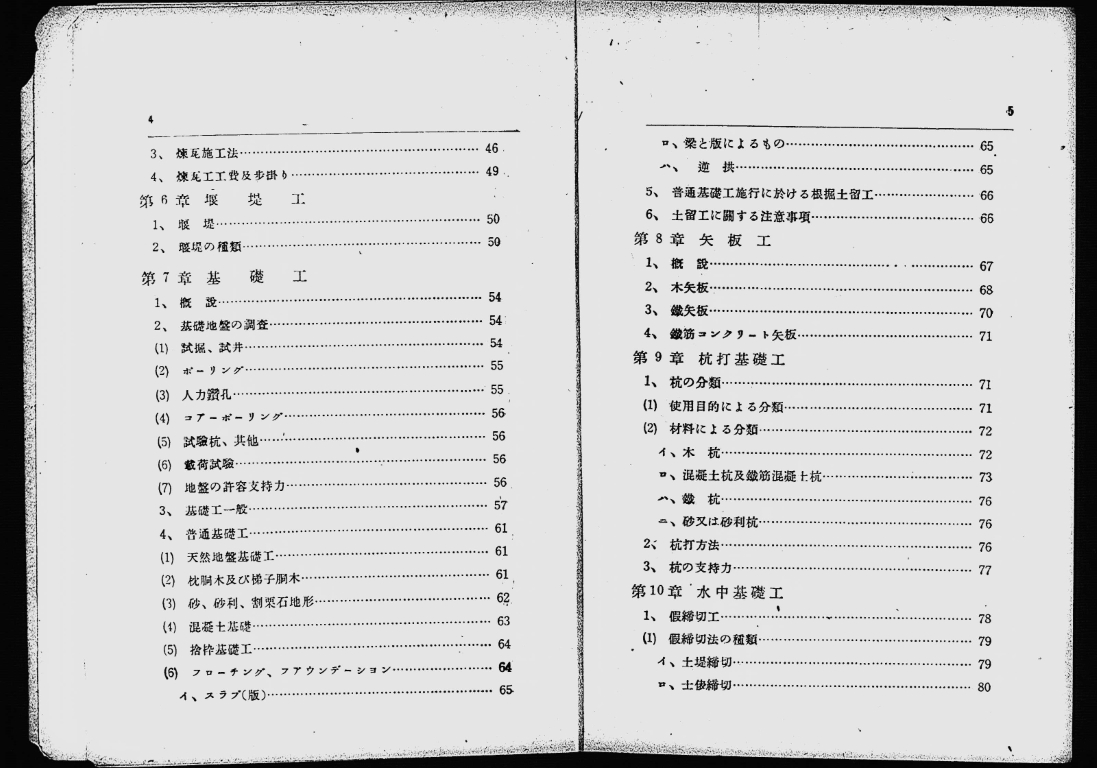 4
3、煉瓦施工法……46
4、煉瓦工工費及歩掛り……49
第6章 堰堤工
1、堰堤……50
2、堰堤の種類……50
第7章 基礎工
1、概説……54
2、基礎地盤の調査……54
(1) 試掘、試井……54
(2) ボーリング……55
(3) 人力鑽孔……55
(4) コアーボーリング……56
(5) 試驗杭、其他……56
(6) 載荷試驗……56
(7) 地盤の許容支持力……56
3、基礎工一般……57
4、普通基礎工……61
(1) 天然地盤基礎工……61
(2) 枕胴木及び梯子胴木……61
(3) 砂、砂利、割栗石地形……62
(4) 混凝土基礎……63
(5) 捨枠基礎工……64
(6) フローチング、フアウンデーション……64
イ、スラブ(版)……65
5
ロ、梁と版によるもの……65
ハ、逆拱……65
5、普通基礎工施行に於ける根掘土留工……66
6、土留工に關する注意事項……66
第8章 矢板工
1、概説……67
2、木矢板……68
3、鐵矢板……70
4、鐵筋コンクリート矢板……71
第9章 杭打基礎工
1、杭の分類……71
(1) 使用目的による分類……71
(2) 材料による分類……72
イ、木杭……72
ロ、混凝土杭及鐵筋混凝土杭……73
ハ、鐵杭……76
ニ、砂又は砂利杭……76
2、杭打方法……76
3、杭の支持力……77
第10章 水中基礎工
1、假締切工……78
(1) 假締切法の種類……79
イ、土堤締切……79
ロ、土俵締切……80